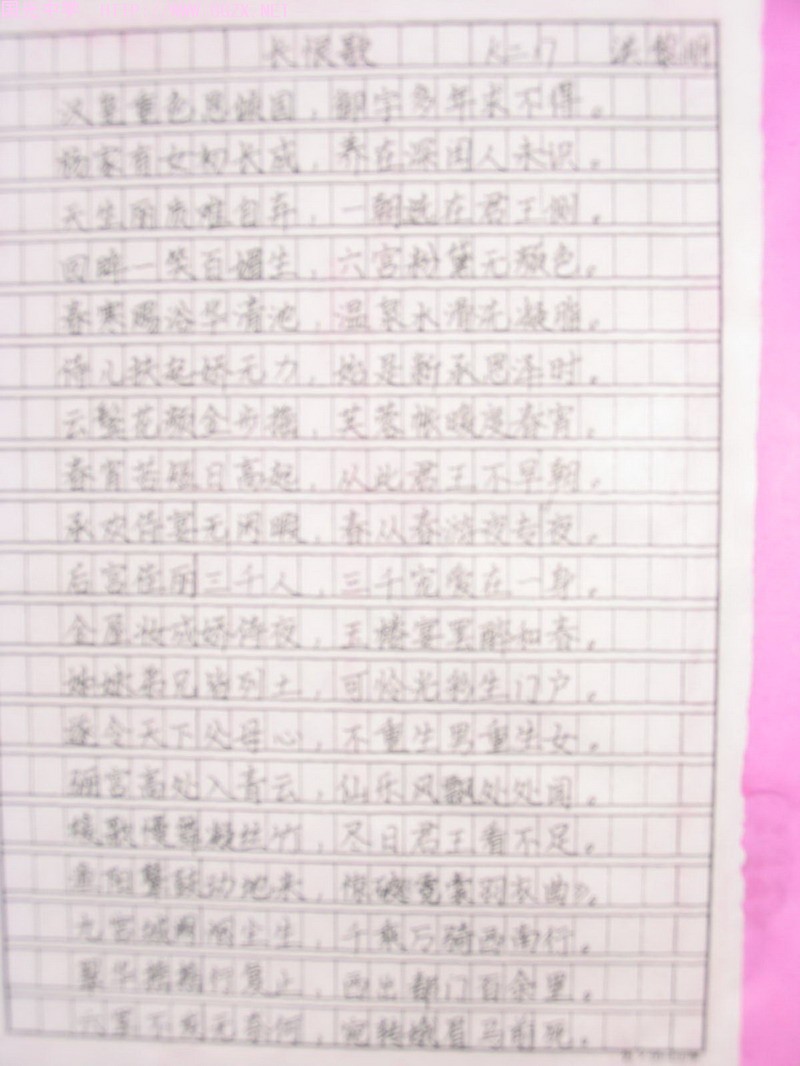 长恨歌 K二17 洪黎明
汉皇重色思倾国，御宇多年求不得。
杨家有女初长成，养在深闺人未识。
天生丽质难自弃，一朝选在君王侧。
回眸一笑百媚生，六宫粉黛无颜色。
春寒赐浴华清池，温泉水滑洗凝脂。
侍儿扶起娇无力，始是新承恩泽时。
云鬓花颜金步摇，芙蓉帐暖度春宵。
春宵苦短日高起，从此君王不早朝。
承欢侍宴无闲暇，春从春游夜专夜。
后宫佳丽三千人，三千宠爱在一身。
金屋妆成娇侍夜，玉楼宴罢醉和春。
姊妹弟兄皆列土，可怜光彩生门户。
遂令天下父母心，不重生男重生女。
骊宫高处入青云，仙乐风飘处处闻。
缓歌慢舞凝丝竹，尽日君王看不足。
鱼阳鼙鼓动地来，惊破霓裳羽衣曲。
九宫城阙烟尘生，千乘万骑西南行。
翠华摇摇行复止，西出都门百余里。
六军不发无奈何，宛转娥眉马前死。